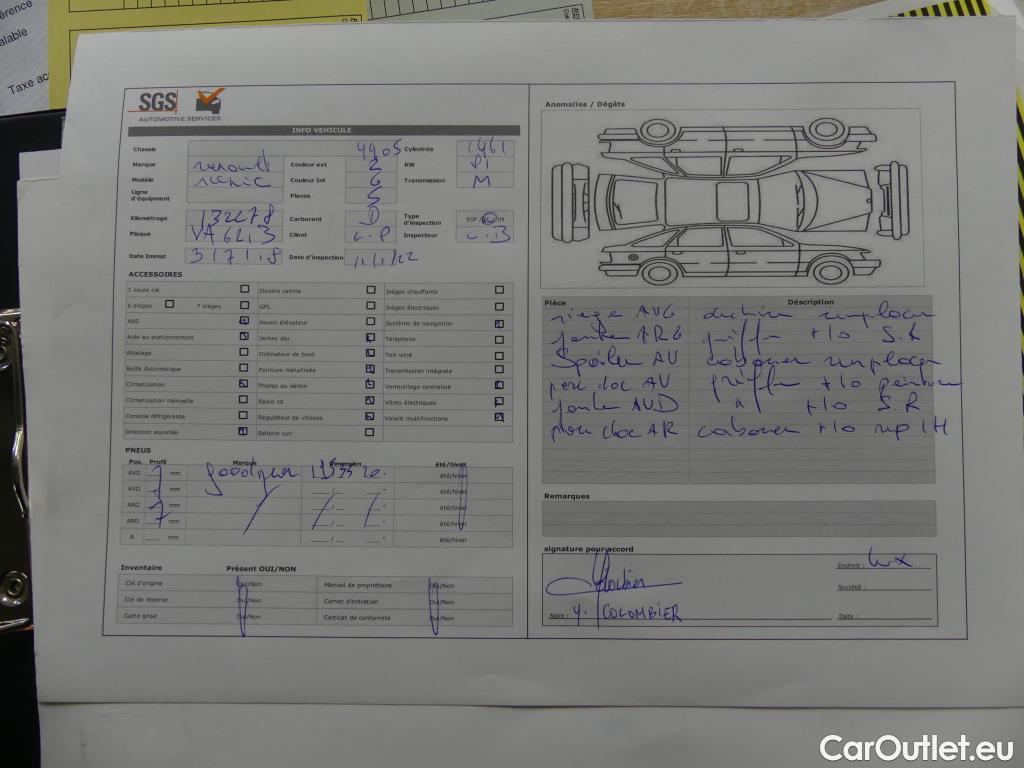 érence
alable
Taxe acc
SGS
AUTOMOTIVE SERVICES
INFO VEHICULE
Chassis 4405 Cylindrée 1461
Marque renault Couleur ext 2 KW 81
Modèle scenic Couleur Int 6 Transmission M
Ligne d'équipement Places 5
Kilométrage 132278 Carburant D Type d'inspection ESP / /IM
Plaque VA6213 Client Inspecteur
Date Immat 3/7/18 Date d'inspection
ACCESSOIRES
1 seule clé Double cabine Sièges chauffants
6 sièges 7 sièges GPL Sièges électriques
ABS Hayon élévateur Système de navigation
Aide au stationnement Jantes alu Téléphone
Attelage Ordinateur de bord Toit vitré
Boîte Automatique Peinture métallisée Transmission intégrale
Climatisation Phares au xénon Verrouillage centralisé
Climatisation manuelle Radio cd Vitres électriques
Console réfrigérante Régulateur de vitesse Volant multifonctions
Direction assistée Sellerie cuir
PNEUS
Pos. Profil Marque Dimension été/hiver
AVG 7 mm goodyear été/hiver
AVD mm été/hiver
ARG mm été/hiver
ARD mm été/hiver
R mm été/hiver
Inventaire Présent OUI/NON
Clé d'origine Oui/Non Manuel de propriétaire Oui/Non
Clé de réserve Oui/Non Carnet d'entretien Oui/Non
Carte grise Oui/Non Certicat de conformité Oui/Non
Anomalies / Dégâts
Pièce Déscription
siege AVG remplacer
jante ARG griffe +10 S.R
Spoiler AV remplacer
pare choc AV griffe +10 peinture
jante AVD +10 S.R
pare choc AR +10
Remarques
signature pour accord
Endroit : Lux
Société :
Nom : Y. COLOMBIER Date :
CarOutlet.eu